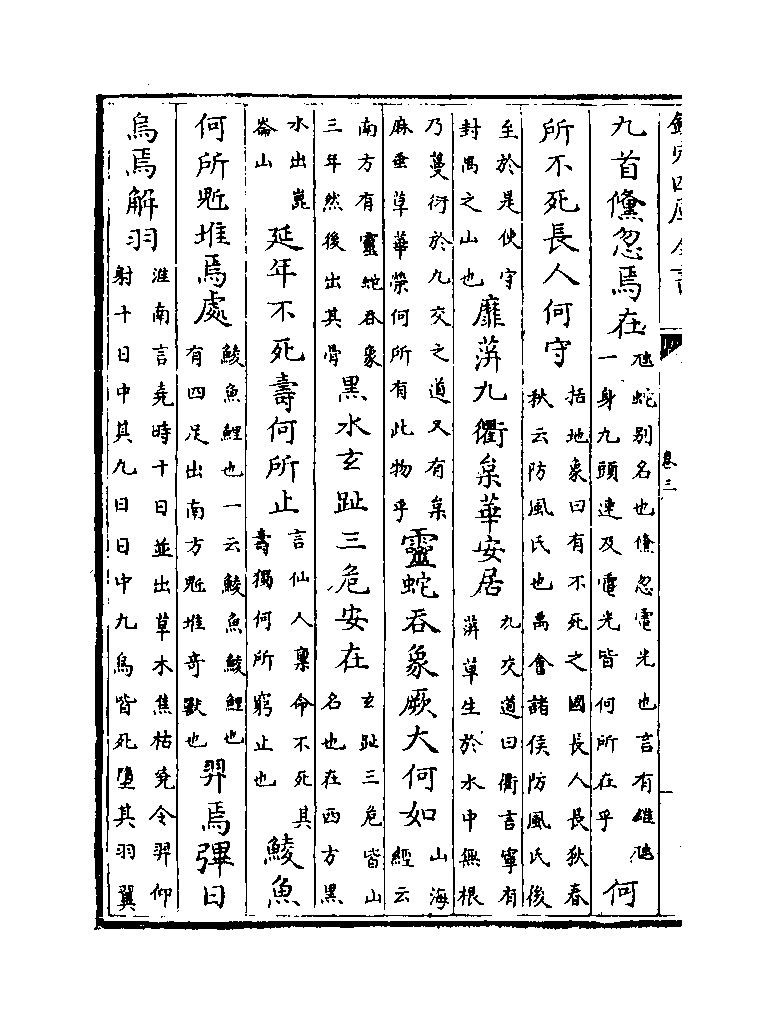 欽定四庫全書
卷三
九首儵忽焉在虺蛇别名也儵忽電光也言有雄虺一身九頭速及電光皆何所在乎何
所不死長人何守括地象曰有不死之國長人長狄春秋云防風氏也禹會諸侯防風氏後
至於是使守封禺之山也靡蓱九衢枲華安居九交道曰衢言寧有蓱草生於水中無根
乃蔓衍於九交之道又有枲麻垂草華榮何所有此物乎靈蛇吞象厥大何如山海經云
南方有靈蛇吞象三年然後出其骨黑水玄趾三危安在玄趾三危皆山名也在西方黑
水出崑崙山延年不死壽何所止言仙人稟命不死其壽獨何所窮止也鯪魚
何所鬿堆焉處鯪魚鯉也一云鯪魚鯪鯉也有四足出南方鬿堆奇獸也羿焉彃日
烏焉解羽淮南言堯時十日並出草木焦枯堯令羿仰射十日中其九日日中九烏皆死墮其羽翼